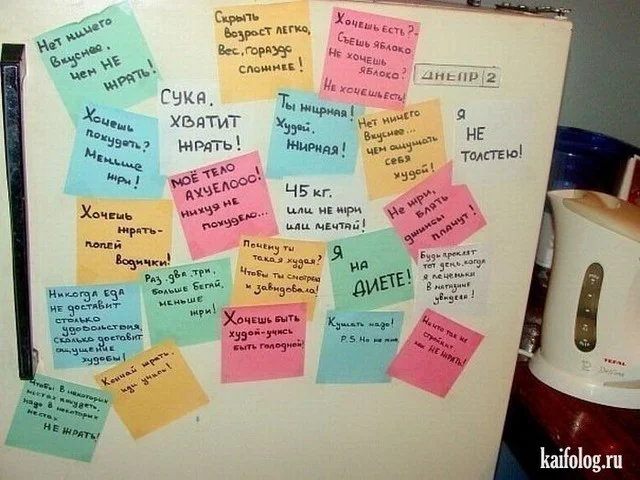 Нет ничего
вкуснее,
чем НЕ
ЖРАТЬ!
Скрыть
возраст легко,
Вес, гораздо
сложнее!
Хочешь есть?-
Съешь яблоко
Не хочешь
яблоко?
Не хочешь есть!
ДНЕПР 2
Хочешь
похудеть?
Меньше
жри!
СУКА,
ХВАТИТ
ЖРАТЬ!
Ты жирная!
Худей,
ЖИРНАЯ!
Нет ничего
Вкуснее...
чем ощущать
себя
худой!
Я
НЕ
ТОЛСТЕЮ!
Хочешь
жрать-
попей
водички!
МОЁ ТЕЛО
АХУЕЛООО!
нихуя не
похудело...
45 кг.
ИЛИ НЕ ЖРИ
ИЛИ МЕЧТАЙ!
Не жри,
блять
джинсы
плачут!
Никогда еда
не доставит
столько
удовольствия,
сколько доставит
ощущение
худобы!
Раз, два, три,
больше бегай,
меньше
жри!
Почему ты
такая худая?
Чтобы ты смотрела
и завидовала!
Я
НА
ДИЕТЕ!
Будь проклят
тот день, когда
я печеньки
в магазине
увидела!
Хочешь быть
худой-учись
быть голодной!
Кушать надо!
P.S. Но не мне
Ничто так не
стройнит
как НЕ ЖРАТЬ!
Чтобы в некоторых
местах похудеть,
надо в некоторых
местах
НЕ ЖРАТЬ!
Кончай жрать,
иди учись!
TEFAL
kaifolog.ru